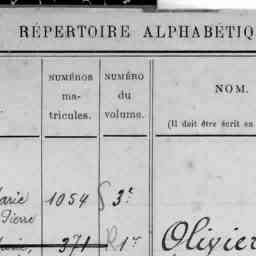 RÉPERTOIRE ALPHABÉTIQ
NUMÉROS
ma-
tricules.
NUMÉRO
du
volume.
NOM.
(Il doit être écrit en
arie 1054 3e
Pierre
371 R1er Olivier